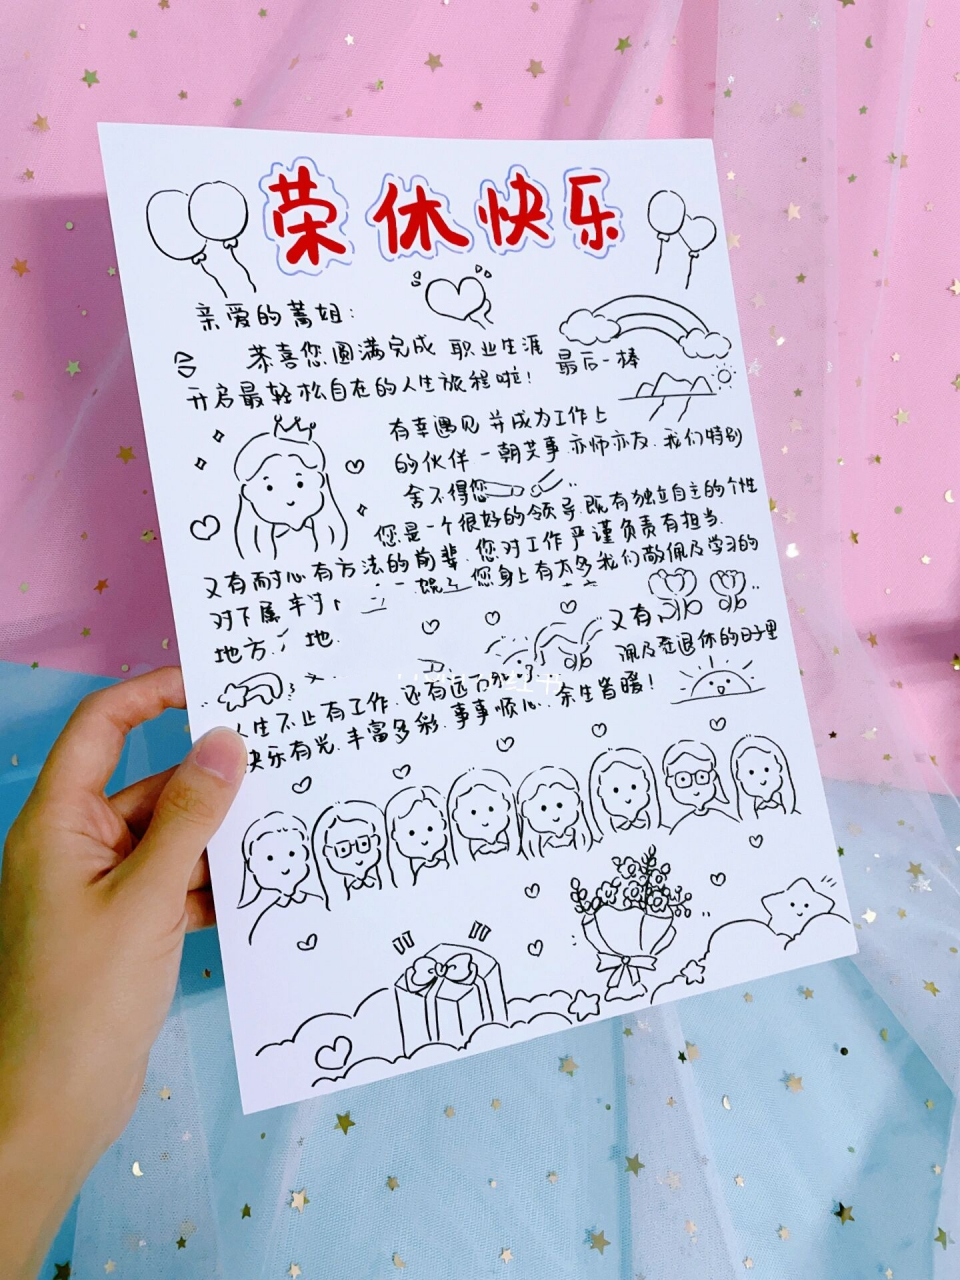 荣休快乐
亲爱的蒿姐：
恭喜您圆满完成 职业生涯 最后一棒
开启最轻松自在的人生旅程啦！
有幸遇见 并成为工作上
的伙伴 一朝共事.亦师亦友.我们特别
舍不得您
您是一个很好的领导.既有独立自主的个性
又有耐心有方法的前辈.您对工作严谨负责有担当.
对下属 您身上有太多我们敬佩及学习的
地方. 地. 又有
在退休的日子里
人生不止有工作.还有远
快乐有光.丰富多彩.事事顺心.余生皆暖！